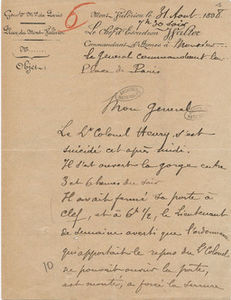 Gouvt Mre de Paris
Place du Mont-Valérien
6
Mont Valérien le 31 Août 1898
7h 30 soir
Le Chef d'Escadron Walter
Commandant d'Armes à Monsieur
le Général commandant la
Place de Paris
Objet:
Mon général
Le Lt Colonel Henry s'est
suicidé cet après midi.
Il s'est ouvert la gorge entre
3 et 6 heures du soir
Il avait fermé sa porte à
clef, et à 6h 1/2, le Lieutenant
de semaine averti que l'ordonnance
qui apportait le repas du Lt Colonel
ne pouvait ouvrir la porte,
est monté, a forcé la serrure
10